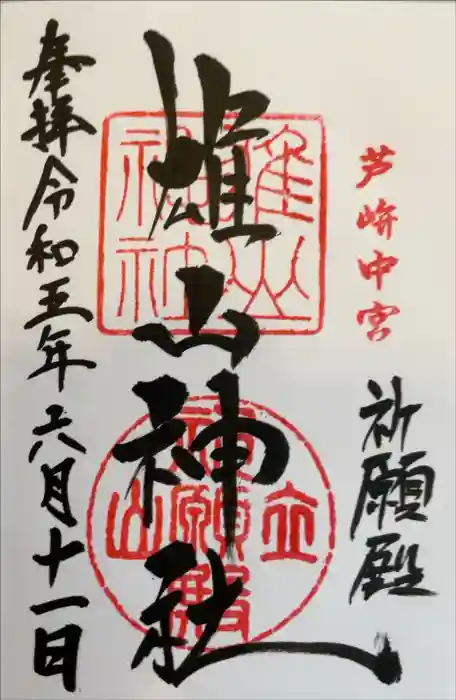 芦峅中宮
祈願殿
雄山神社
奉拝 令和五年六月十一日
雄山神社
立山
祈願殿